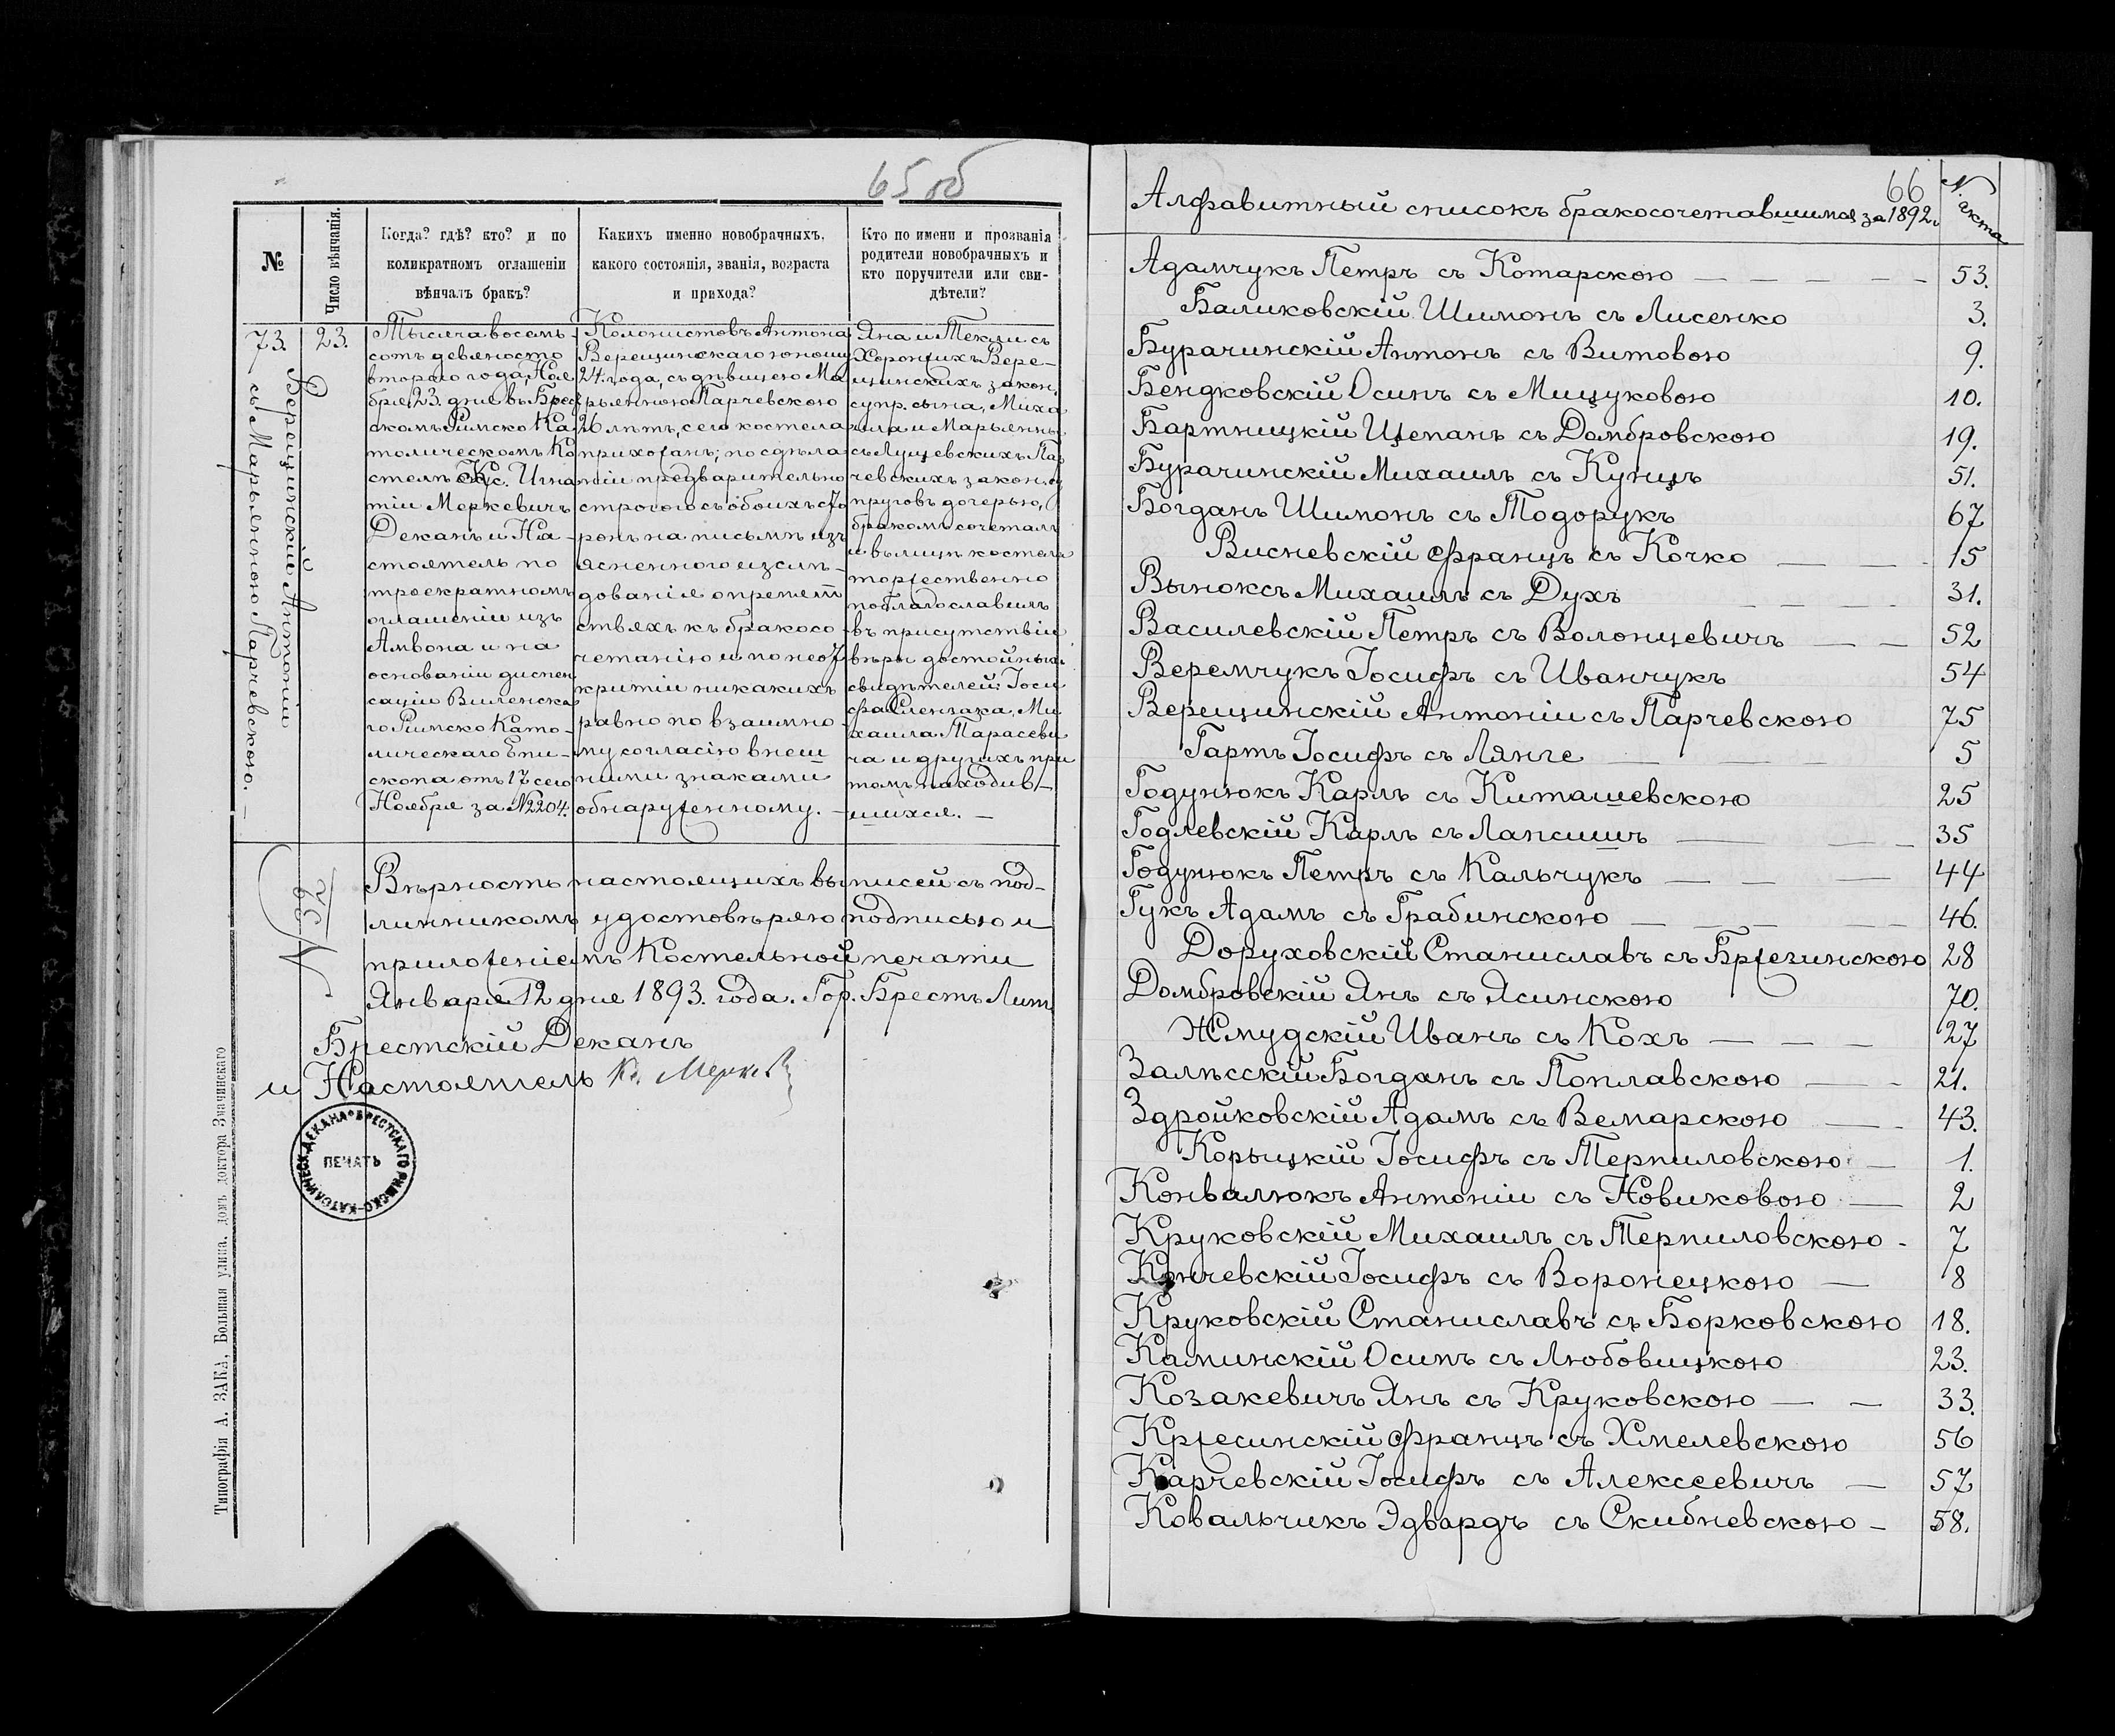 65 об
№
Число вѣнчанія.
Когда? гдѣ? кто? и по
коликратномъ оглашеніи
вѣнчалъ бракъ?
Какихъ именно новобрачныхъ,
какого состоянія, званія, возраста
и прихода?
Кто по имени и прозванія
родители новобрачныхъ и
кто поручители или сви-
дѣтели?
73.
Верещинскій Антоній
съ Марьянною Парчевскою. —
23.
Тысяча восемь-
сотъ девяносто
второго года, Ноя
бря 23. дня въ Брес
скомъ Римско Ка
толическомъ Ко
стелѣ Кс. Игна
тій Меркевичъ
Деканъ и На-
стоятель по
троекратномъ
оглашеніи изъ
Амвона и на
основаніи диспен
саціи Виленска
го Римско Като-
лическаго Епи-
скопа отъ 17 сего
Ноября за №2204.
Колонистовъ Антона
Верещинскаго юношу
24. года, съ дѣвицею Ма
рьянною Парчевскою
26 лѣтъ, сего костела
прихожанъ; по сдѣла
ніи предварительно
строгого съ обоихъ сто
ронъ на письмѣ изъ
ясненного изслѣ-
дованія о препят
ствяхъ къ бракосо
четанію и по неот
крытіи никакихъ
равно по взаимно
му согласію внеш
ними знаками
обнаруженному. —
Яна и Текли съ
Хоронжихъ Вере-
щинскихъ закон.
супр. сына, Миха
ила и Марьянны
съ Лущевскихъ Пар
чевскихъ закон. су
пруговъ дочерью,
бракомъ сочеталъ
и въ лицѣ костела
торжественно
поблагославилъ
въ присутствіи
вѣры достойныхъ
свидѣтелей: Іоси
фа Слензака, Ми
хаила Тарасеви
ча и другихъ при
томъ находив-
шихся. —
№ 32
Вѣрность настоящихъ выписей съ под-
линникомъ удостовѣряю подписью и
приложеніемъ Костельной печати
Января 12 дня 1893. года. Гор. Брестъ Лит.
Брестскій Деканъ
и Настоятель Кс. Меркев
БРЕСТСКАГО РИМСКО-КАТОЛИЧЕСК. ДЕКАНА
ПЕЧАТЬ
Типографія А. ЗАКА, Большая улица, домъ доктора Значинскаго
66
Алфавитный списокъ бракосочетавшимся за 1892 г.
N. акта
Адамчукъ Петръ съ Котарскою — — — — — 53.
Баликовскій Шимонъ съ Лисенко 3.
Бурачинскій Антонъ съ Витовою 9.
Бендковскій Осипъ съ Мищуковою 10.
Бартницкій Щепанъ съ Домбровскою 19.
Бурачинскій Михаилъ съ Кунцъ 51.
Богданъ Шимонъ съ Тодорукъ 67
Висневскій Францъ съ Кочко — — 15
Выноксъ Михаилъ съ Духъ — — — 31.
Василевскій Петръ съ Волонцевичъ — — 52
Веремчукъ Іосифъ съ Иванчукъ 54
Верещинскій Антоніи съ Парчевскою 75
Гартъ Іосифъ съ Лянге — — — 5
Годунюкъ Карлъ съ Киташевскою 25
Годлевскій Карлъ съ Лапсишъ — — — 35
Годунюкъ Петръ съ Кальчукъ — — — 44
Гукъ Адамъ съ Грабинскою — — — — 46.
Доруховскій Станиславъ съ Бржезинскою 28
Домбровскій Янъ съ Ясинскою 70.
Жмудскій Иванъ съ Кохъ — — — 27
Залѣсскій Богданъ съ Поплавскою — - 21.
Здройковскій Адамъ съ Вемарскою — - 43.
Корыцкій Іосифъ съ Терпиловскою — 1.
Конвалюкъ Антоніи съ Новиковою — 2
Круковскій Михаилъ съ Терпиловскою - 7
Кончевскій Іосифъ съ Воронецкою — 8
Круковскій Станиславъ съ Борковскою 18.
Каминскій Осипъ съ Любовицкою 23.
Козакевичъ Янъ съ Круковскою — — 33.
Кржесинскій Францъ съ Хмелевскою 56
Карчевскій Іосифъ съ Алексеевичъ — 57
Ковальчикъ Эдвардъ съ Скибневскою - 58.